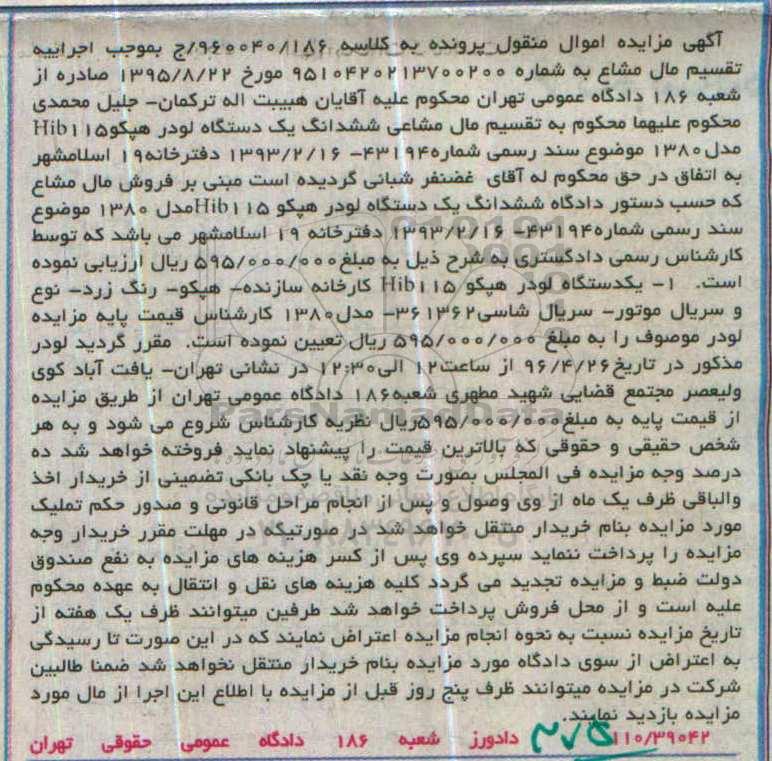 آگهی مزایده اموال منقول پرونده به کلاسه ۹۶۰۰۴۰/۱۸۶/ج بموجب اجراییه
تقسیم مال مشاع به شماره ۹۵۱۰۴۲۰۲۱۳۷۰۰۲۰۰ مورخ ۱۳۹۵/۸/۲۲ صادره از
شعبه ۱۸۶ دادگاه عمومی تهران محکوم علیه آقایان هبیبت اله ترکمان- جلیل محمدی
محکوم علیهما محکوم به تقسیم مال مشاعی ششدانگ یک دستگاه لودر هپکو Hib۱۱۵
مدل ۱۳۸۰ موضوع سند رسمی شماره ۴۳۱۹۴- ۱۳۹۳/۲/۱۶ دفترخانه ۱۹ اسلامشهر
به اتفاق در حق محکوم له آقای غضنفر شبانی گردیده است مبنی بر فروش مال مشاع
که حسب دستور دادگاه ششدانگ یک دستگاه لودر هپکو Hib۱۱۵ مدل ۱۳۸۰ موضوع
سند رسمی شماره ۴۳۱۹۴- ۱۳۹۳/۲/۱۶ دفترخانه ۱۹ اسلامشهر می باشد که توسط
کارشناس رسمی دادگستری به شرح ذیل به مبلغ ۵۹۵/۰۰۰/۰۰۰ ریال ارزیابی نموده
است. ۱- یکدستگاه لودر هپکو Hib۱۱۵ کارخانه سازنده- هپکو- رنگ زرد- نوع
و سریال موتور- سریال شاسی ۳۶۱۳۶۲- مدل ۱۳۸۰ کارشناس قیمت پایه مزایده
لودر موصوف را به مبلغ ۵۹۵/۰۰۰/۰۰۰ ریال تعیین نموده است. مقرر گردید لودر
مذکور در تاریخ ۹۶/۴/۲۶ از ساعت ۱۲ الی ۱۲:۳۰ در نشانی تهران- یافت آباد کوی
ولیعصر مجتمع قضایی شهید مطهری شعبه ۱۸۶ دادگاه عمومی تهران از طریق مزایده
از قیمت پایه به مبلغ ۵۹۵/۰۰۰/۰۰۰ ریال نظریه کارشناس شروع می شود و به هر
شخص حقیقی و حقوقی که بالاترین قیمت را پیشنهاد نماید فروخته خواهد شد ده
درصد وجه مزایده فی المجلس بصورت وجه نقد یا چک بانکی تضمینی از خریدار اخذ
والباقی ظرف یک ماه از وی وصول و پس از انجام مراحل قانونی و صدور حکم تملیک
مورد مزایده بنام خریدار منتقل خواهد شد در صورتیکه در مهلت مقرر خریدار وجه
مزایده را پرداخت ننماید سپرده وی پس از کسر هزینه های مزایده به نفع صندوق
دولت ضبط و مزایده تجدید می گردد کلیه هزینه های نقل و انتقال به عهده محکوم
علیه است و از محل فروش پرداخت خواهد شد طرفین میتوانند ظرف یک هفته از
تاریخ مزایده نسبت به نحوه انجام مزایده اعتراض نمایند که در این صورت تا رسیدگی
به اعتراض از سوی دادگاه مورد مزایده بنام خریدار منتقل نخواهد شد ضمنا طالبین
شرکت در مزایده میتوانند ظرف پنج روز قبل از مزایده با اطلاع این اجرا از مال مورد
مزایده بازدید نمایند.
۱۱۰/۳۹۰۴۲ دادورز شعبه ۱۸۶ دادگاه عمومی حقوقی تهران
ParsNamadData